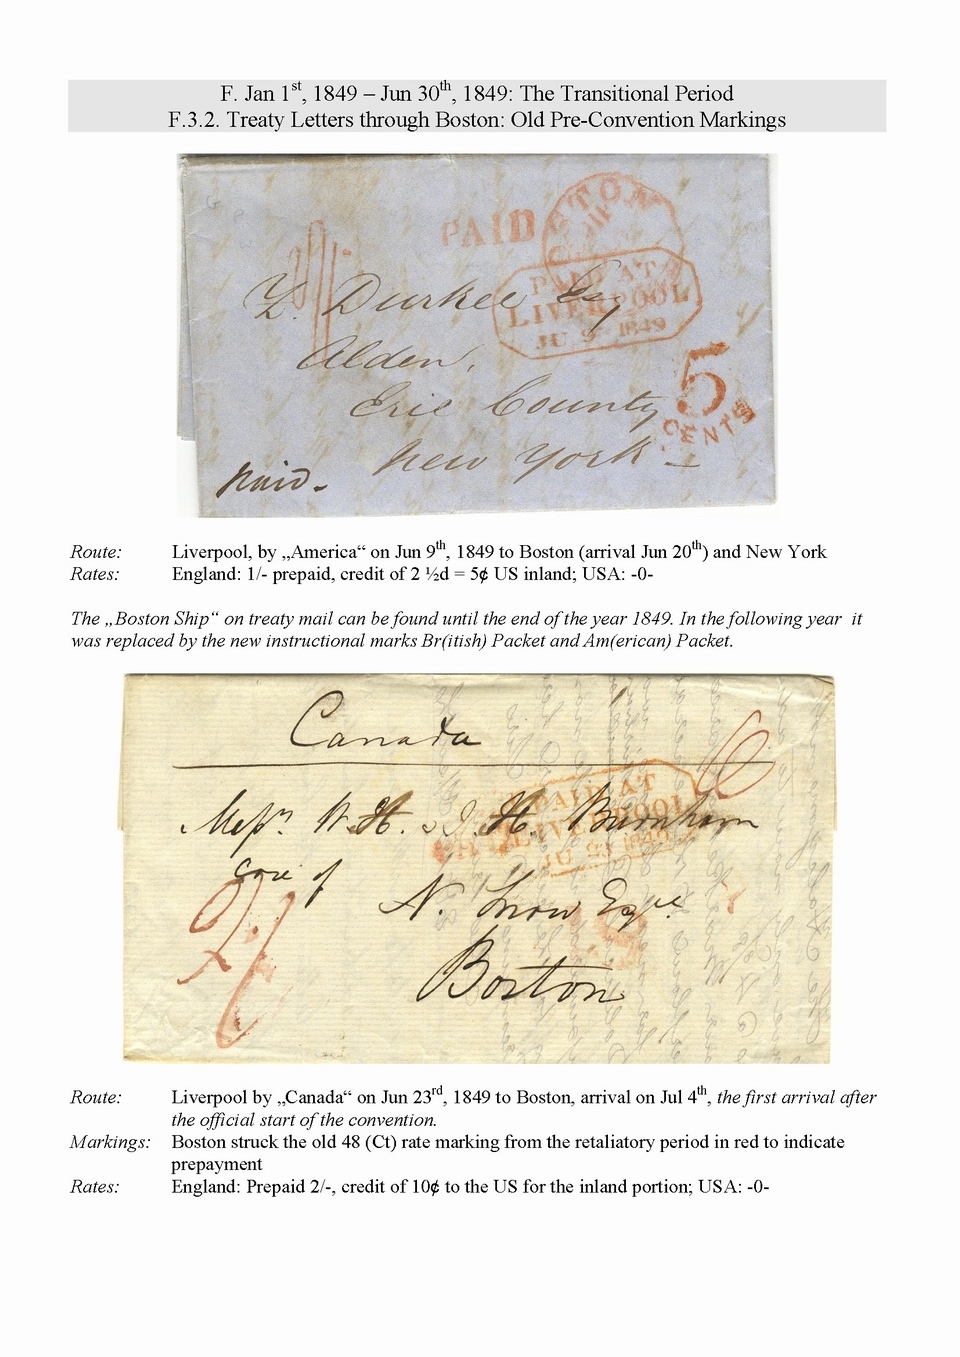 F. Jan 1st, 1849 – Jun 30th, 1849: The Transitional Period
F.3.2. Treaty Letters through Boston: Old Pre-Convention Markings
PAID
PAID AT
LIVERPOOL
JU 9 1849
Z. Durkee Esq
Alden,
Erie County
New York
5
CENTS
Paid.
Route: Liverpool, by „America“ on Jun 9th, 1849 to Boston (arrival Jun 20th) and New York
Rates: England: 1/- prepaid, credit of 2 ½d = 5¢ US inland; USA: -0-
The „Boston Ship“ on treaty mail can be found until the end of the year 1849. In the following year it
was replaced by the new instructional marks Br(itish) Packet and Am(erican) Packet.
Canada
PAID AT
LIVERPOOL
Messrs W.H. & J.H. Burnham
care of
N. Snow Esqre
Boston
Route: Liverpool by „Canada“ on Jun 23rd, 1849 to Boston, arrival on Jul 4th, the first arrival after
the official start of the convention.
Markings: Boston struck the old 48 (Ct) rate marking from the retaliatory period in red to indicate
prepayment
Rates: England: Prepaid 2/-, credit of 10¢ to the US for the inland portion; USA: -0-